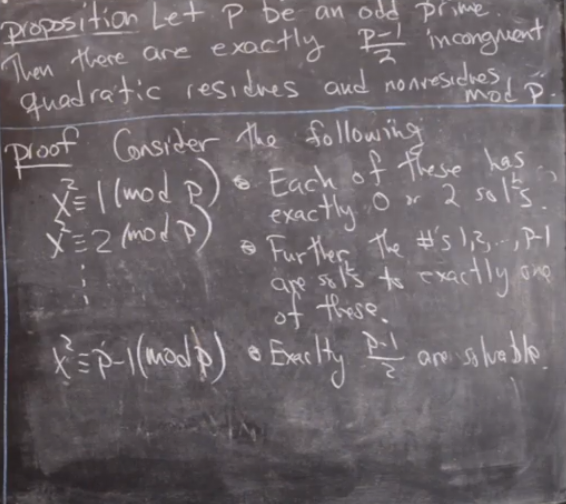 Proposition Let P be an odd prime.
Then there are exactly P-1/2 incongruent
quadratic residues and nonresidues
mod P.
Proof Consider the following
X² ≡ 1 (mod P)
X² ≡ 2 (mod P)
⋮
X² ≡ P-1 (mod P)
• Each of these has
exactly 0 or 2 sol's.
• Further, the #'s 1,2,...,P-1
are sol's to exactly one
of these.
• Exaclty P-1/2 are solvable.